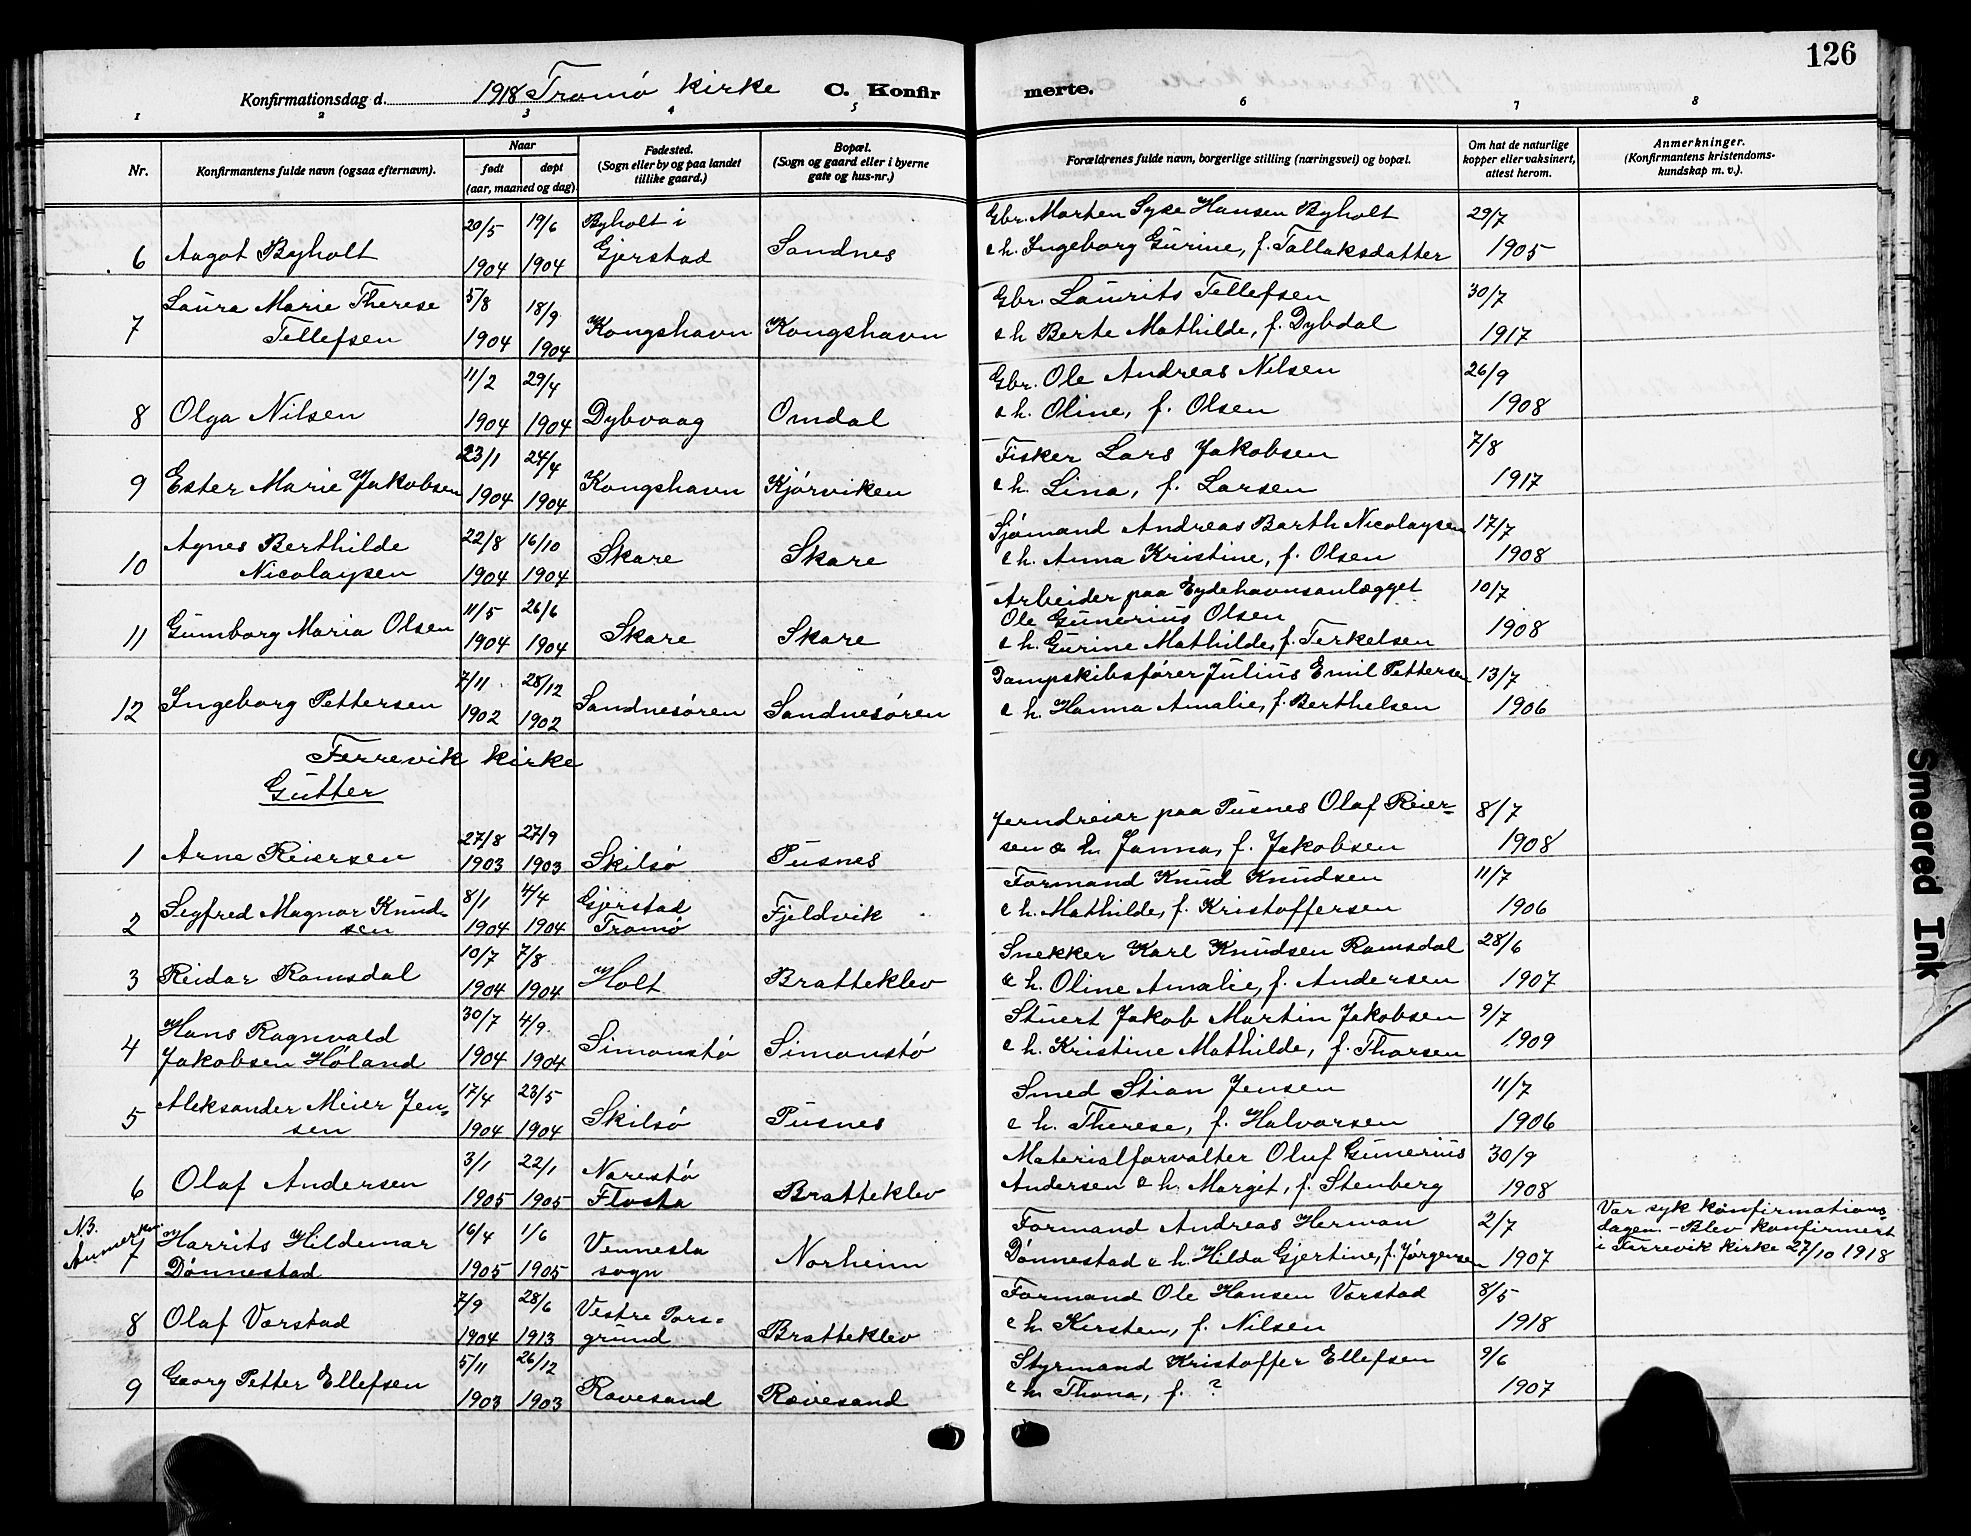 126
Konfirmationsdag d. 1918 Tromø kirke C. Konfirmerte.
1 2 3 4 5 6 7 8
Nr. Konfirmantens fulde navn (ogsaa efternavn). Naar født døpt (aar, maaned og dag) Fødested. (Sogn eller by og paa landet tillike gaard.) Bopæl. (Sogn og gaard eller i byerne gate og hus-nr.) Forældrenes fulde navn, borgerlige stilling (næringsvei) og bopæl. Om hat de naturlige kopper eller vaksinert, attest herom. Anmerkninger. (Konfirmantens kristendoms-kundskap m. v.).
20/5 19/6 Byholt i Gbr. Morten Syke Hansen Byholt 29/7
6 Aagot Byholt 1904 1904 Gjerstad Sandnes & h. Ingeborg Gurine, f. Tallaksdatter 1905
Laura Marie Therese 5/8 18/9 Gbr. Laurits Tellefsen 30/7
7 Tellefsen 1904 1904 Kongshavn Kongshavn & h. Berte Mathilde, f. Dybdal 1917
11/2 29/4 Gbr. Ole Andreas Nilsen 26/9
8 Olga Nilsen 1904 1904 Dybvaag Omdal & h. Oline, f. Olsen 1908
23/1 24/4 Fisker Lars Jakobsen 7/8
9 Ester Marie Jakobsen 1904 1904 Kongshavn Kjørviken & h. Lina, f. Larsen 1917
Agnes Berthilde 22/8 16/10 Sjømand Andreas Barth Nicolaysen 17/7
10 Nicolaysen 1904 1904 Skare Skare & h. Anna Kristine, f. Olsen 1908
11/5 26/6 Arbeider paa Eydehavnsanlægget 10/7
11 Gumborg Maria Olsen Ole Gunerius Olsen
1904 1904 Skare Skare & h. Gurine Mathilde, f. Terkelsen 1908
7/11 28/12 Dampskibsfører Julius Emil Pettersen 13/7
12 Ingeborg Pettersen 1902 1902 Sandnesøren Sandnesøren & h. Hanna Amalie, f. Berthelsen 1906
Færrevik kirke
Gutter
27/8 27/9 Jerndreier paa Pusnes Olaf Reier- 8/7
1 Arne Reiersen 1903 1903 Skilsø Pusnes sen & h. Janna, f. Jakobsen 1908
Sigfred Magnar Knud- 8/1 4/4 Gjerstad Formand Knud Knudsen 11/7
2 sen 1904 1904 Tromø Fjeldvik & h. Mathilde, f. Kristoffersen 1906
10/7 7/8 Snekker Karl Knudsen Ramsdal 28/6
3 Reidar Ramsdal 1904 1904 Holt Bratteklev & h. Oline Amalie, f. Andersen 1907
Hans Ragnvald 30/7 4/9 Stuert Jakob Martin Jakobsen 9/7
4 Jakobsen Høland 1904 1904 Simonstø Simonstø & h. Kristine Mathilde, f. Thorsen 1909
Aleksander Meier Jen- 17/4 23/5 Smed Stian Jensen 11/7
5 sen 1904 1904 Skilsø Pusnes & h. Therese, f. Halvorsen 1906
3/1 22/1 Narestø Materialforvalter Oluf Gunerius 30/9
6 Olaf Andersen 1905 1905 Flosta Bratteklev Andersen & h. Margit, f. Stenberg 1908
NB. Harrits Hildemar 16/4 1/6 Vennesla Formand Andreas Herman 2/7 Var syk konfirmations-
dagen. - Blev konfirmert
7 Dønnestad 1905 1905 sogn Norheim Dønnestad & h. Hilda Gjertine, f. Jørgensen 1907 i Færrevik kirke 27/10 1918
7/9 28/6 Vestre Pors- Formand Ole Hansen Varstad 8/5
8 Olaf Varstad 1904 1913 grund Bratteklev & h. Kirsten, f. Nilsen 1918
5/11 26/12 Styrmand Kristoffer Ellefsen 9/6
9 Georg Petter Ellefsen 1903 1903 Rævesand Rævesand & h. Thona, f. ? 1907
Smeared Ink